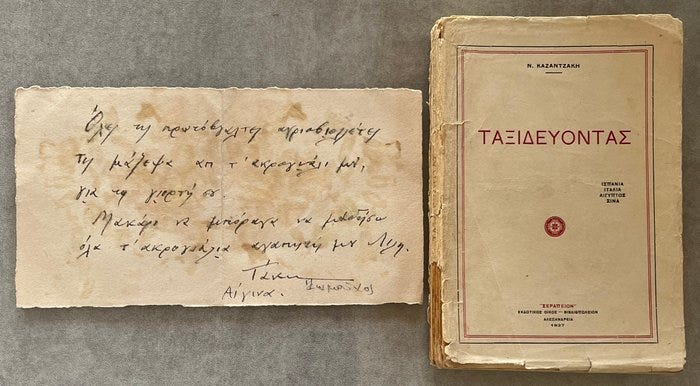 Όλες τις πρωτόβγαλτες αγριοβιολέτες
τις μάζεψα απ τ' ακρογιάλι μου,
για τη γιορτή σου.
Μακάρι να μπόραγα να
όλα τ' ακρογιάλια αγαπητή μου
Τάκης
Αίγινα.
Ν. ΚΑΖΑΝΤΖΑΚΗ
ΤΑΞΙΔΕΥΟΝΤΑΣ
ΙΣΠΑΝΙΑ
ΙΤΑΛΙΑ
ΑΙΓΥΠΤΟΣ
ΣΙΝΑ
"ΣΕΡΑΠΕΙΟΝ"
ΕΚΔΟΤΙΚΟΣ ΟΙΚΟΣ — ΒΙΒΛΙΟΠΩΛΕΙΟΝ
ΑΛΕΞΑΝΔΡΕΙΑ
1927